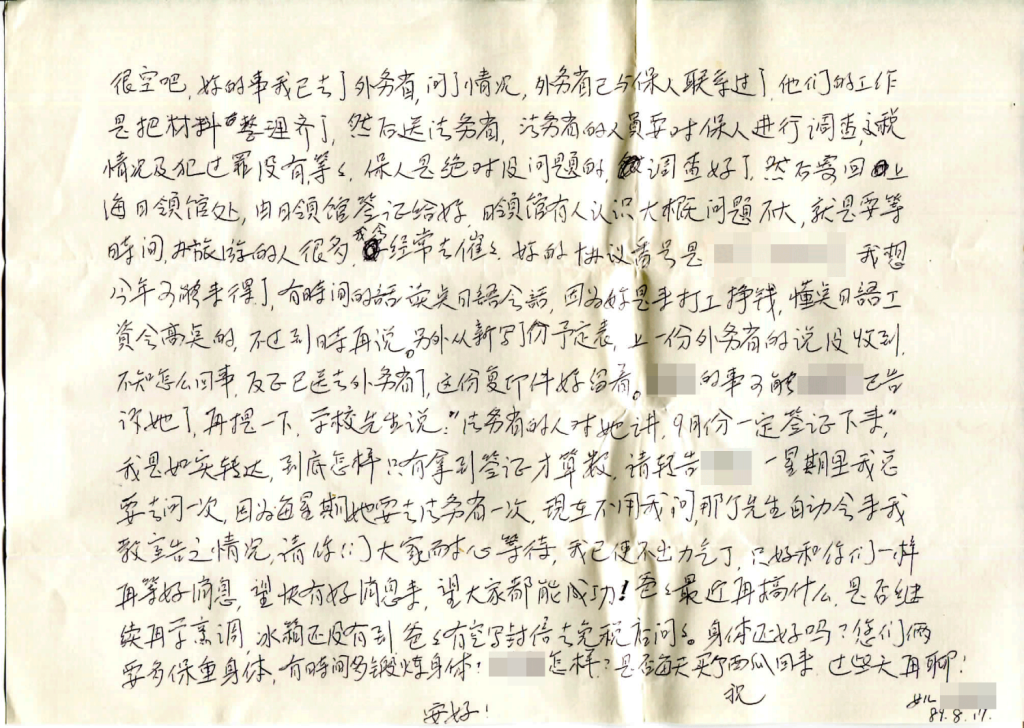 很空吧，好的事我已去了外务省，问了情况，外务省已与保人联系过了，他们的工作
是把材料整理齐了，然后送法务省，法务省的人员要对保人进行调查，交税
情况及犯过罪没有等等，保人是绝对没问题的，调查好了，然后寄回上
海日领馆处，由日领馆签证给好，日领馆有人认识大概问题不大，就是要等
时间，办旅游的人很多，我会经常去催催，好的协议番号是 我想
今年可能来得了，有时间的話读点日語会話，因为好是来打工挣钱，懂点日語工
資会高点的，不过到时再说。另外从新写了份予定表，上一份外务省的说没收到，
不知怎么回事，反正已送去外务省了，这份复印件好留着。 的事可能 已告
诉她了，再提一下，学校先生说："法务省的人对她讲，9月份一定签证下来"
我是如实转达，到底怎样只有拿到签证才算数，请转告 一星期里我总
要去问一次，因为每星期她要去法务省一次，现在不用我问，那个先生自动会来我
教室告之情况，请你们大家耐心等待，我已使不出力气了，只好和你们一样
再等好消息，望快有好消息来，望大家都能成功！爸爸最近再搞什么，是否继
续再学烹调，冰箱还没有到爸爸有空写封信去免税店问问。身体还好吗？您们俩
要多保重身体，有时间多锻炼身体？ 怎样？是否每天买西瓜回来，过些天再聊！
祝
安好！
89.8.17.